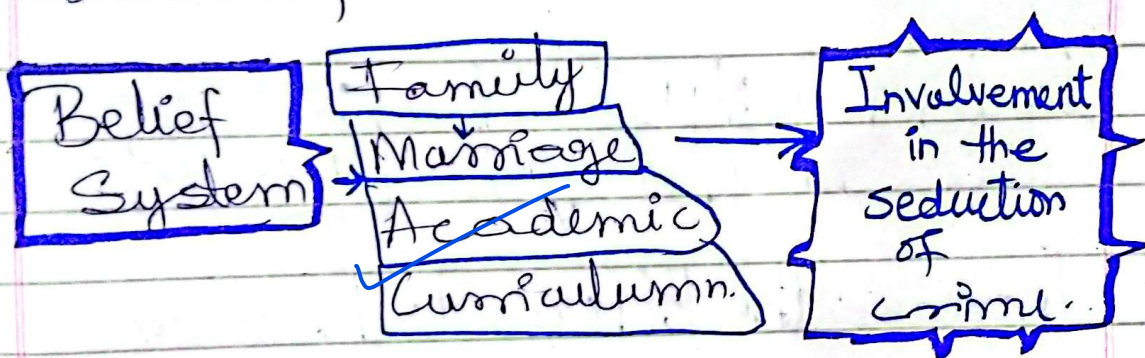 Belief
System
Family
Marriage
Academic
Curriculumn.
Involvement
in the
seduction
of
crime.